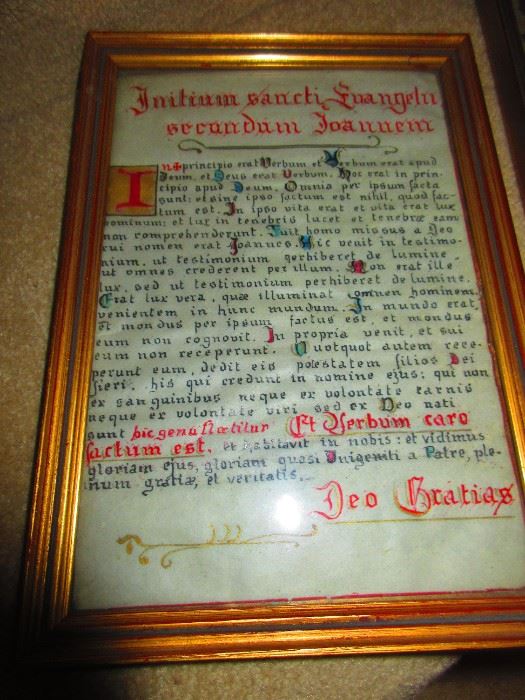 Initium sancti Evangelii
secundum Joannem
In principio erat Verbum et Verbum erat apud
Deum, et Deus erat Verbum. Hoc erat in prin-
cipio apud Deum. Omnia per ipsum facta
sunt: et sine ipso factum est nihil, quod fac-
tum est. In ipso vita erat et vita erat lux
hominum: et lux in tenebris lucet et tenebræ eam
non comprehenderunt. Fuit homo missus a Deo
cui nomen erat Joannes. Hic venit in testimo-
nium, ut testimonium gerhiberet de lumine,
ut omnes crederent per illum. Non erat ille
lux, sed ut testimonium perhiberet de lumine.
Erat lux vera, quæ illuminat omnem hominem
venientem in hunc mundum. In mundo erat,
et mondus per ipsum factus est, et mondus
eum non cognovit. In propria venit, et sui
eum non receperunt. Quotquot autem rece-
perunt eum, dedit eis potestatem filios Dei
fieri, his qui credunt in nomine ejus: qui non
ex sanguinibus neque ex voluntate carnis
neque ex volontate viri sed ex Deo nati
sunt hic genuflectitur Et Verbum caro
factum est, et habitavit in nobis: et vidimus
gloriam ejus, gloriam quasi Unigeniti a Patre, ple-
num gratiæ, et veritatis.
Deo Gratias